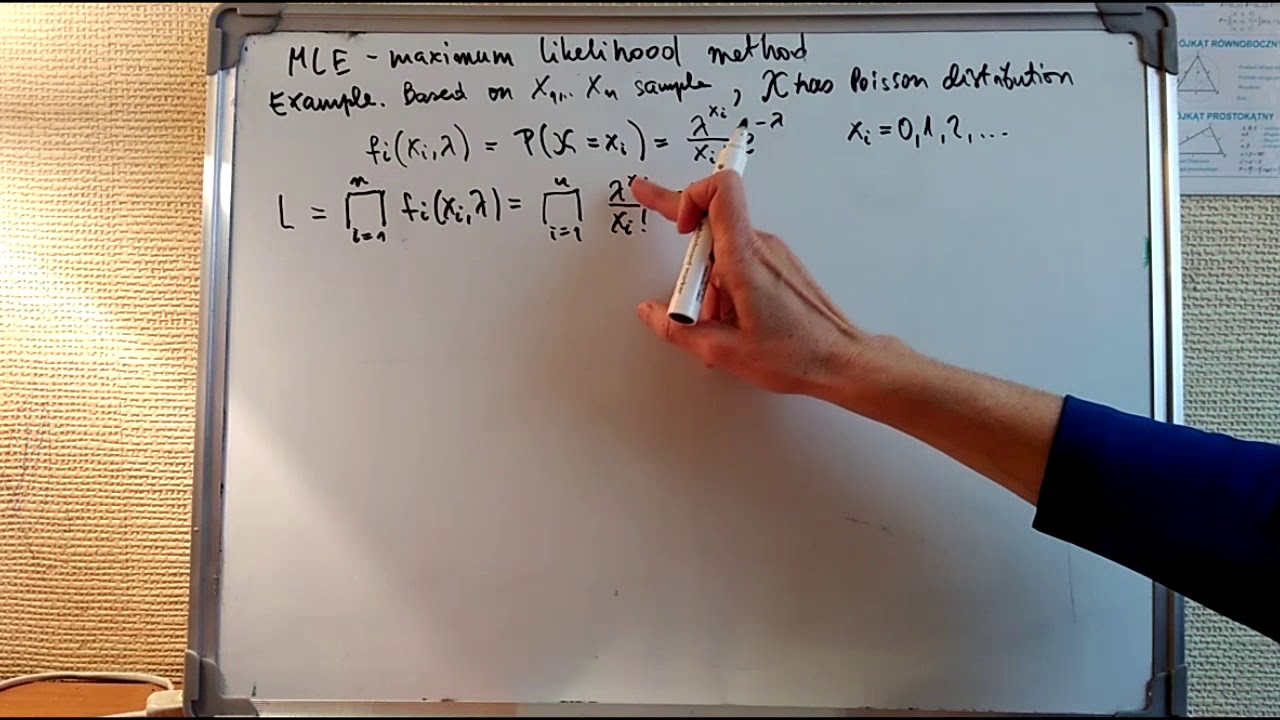 MLE - maximum likelihood method
Example. Based on X₁,... Xₙ sample, X has Poisson distribution
fᵢ(xᵢ,λ) = P(X = xᵢ) = λ^xᵢ / xᵢ e^-λ   xᵢ = 0,1,2,...
L = ∏ᵢ₌₁ⁿ fᵢ(xᵢ,λ) = ∏ᵢ₌₁ⁿ λ^x / xᵢ!
ÓJKĄT RÓWNOBOCZN
ÓJKĄT PROSTOKĄTNY